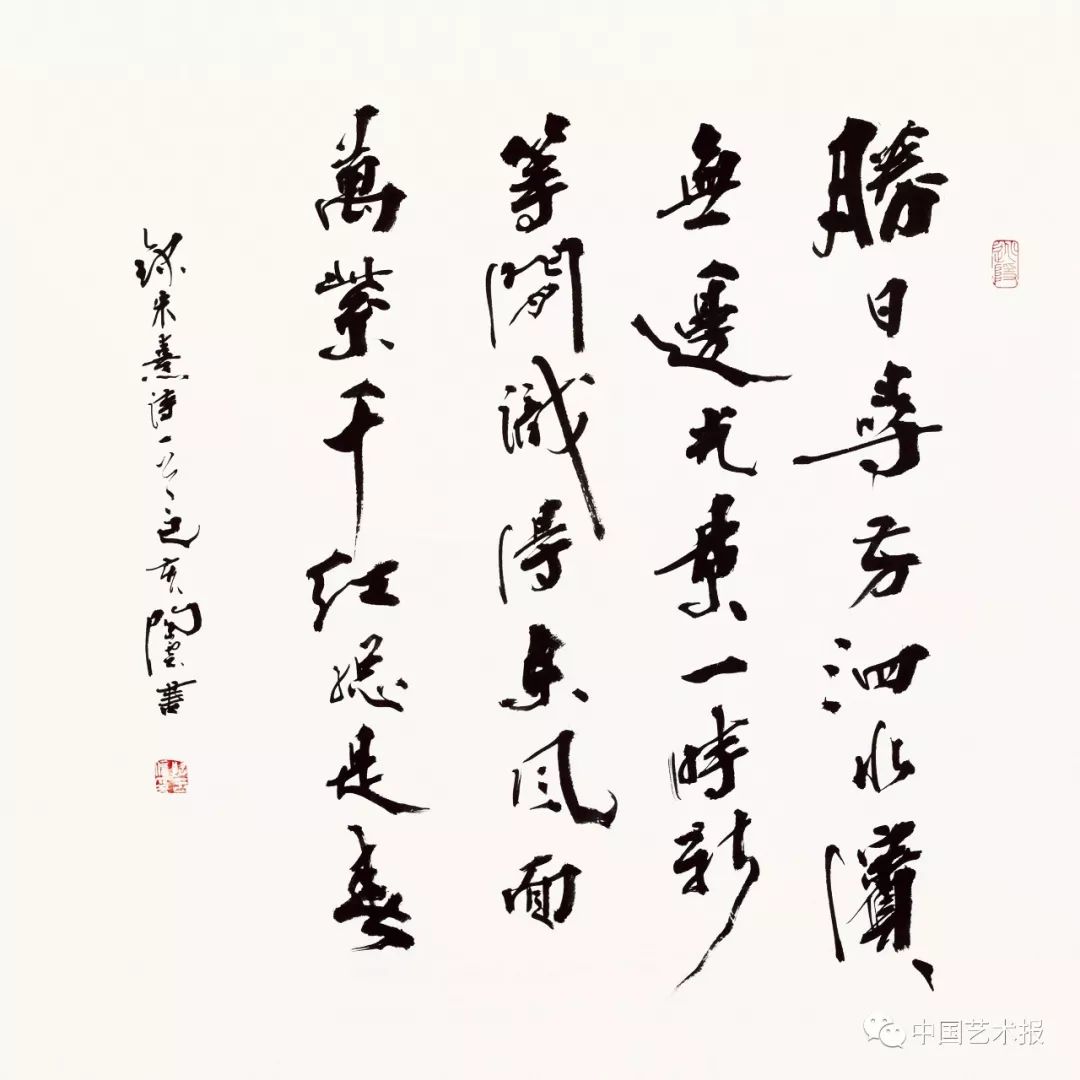 勝日尋芳泗水濱
無邊光景一時新
等閒識得東風面
萬紫千紅總是春
録朱熹詩一首己亥書
中国艺术报